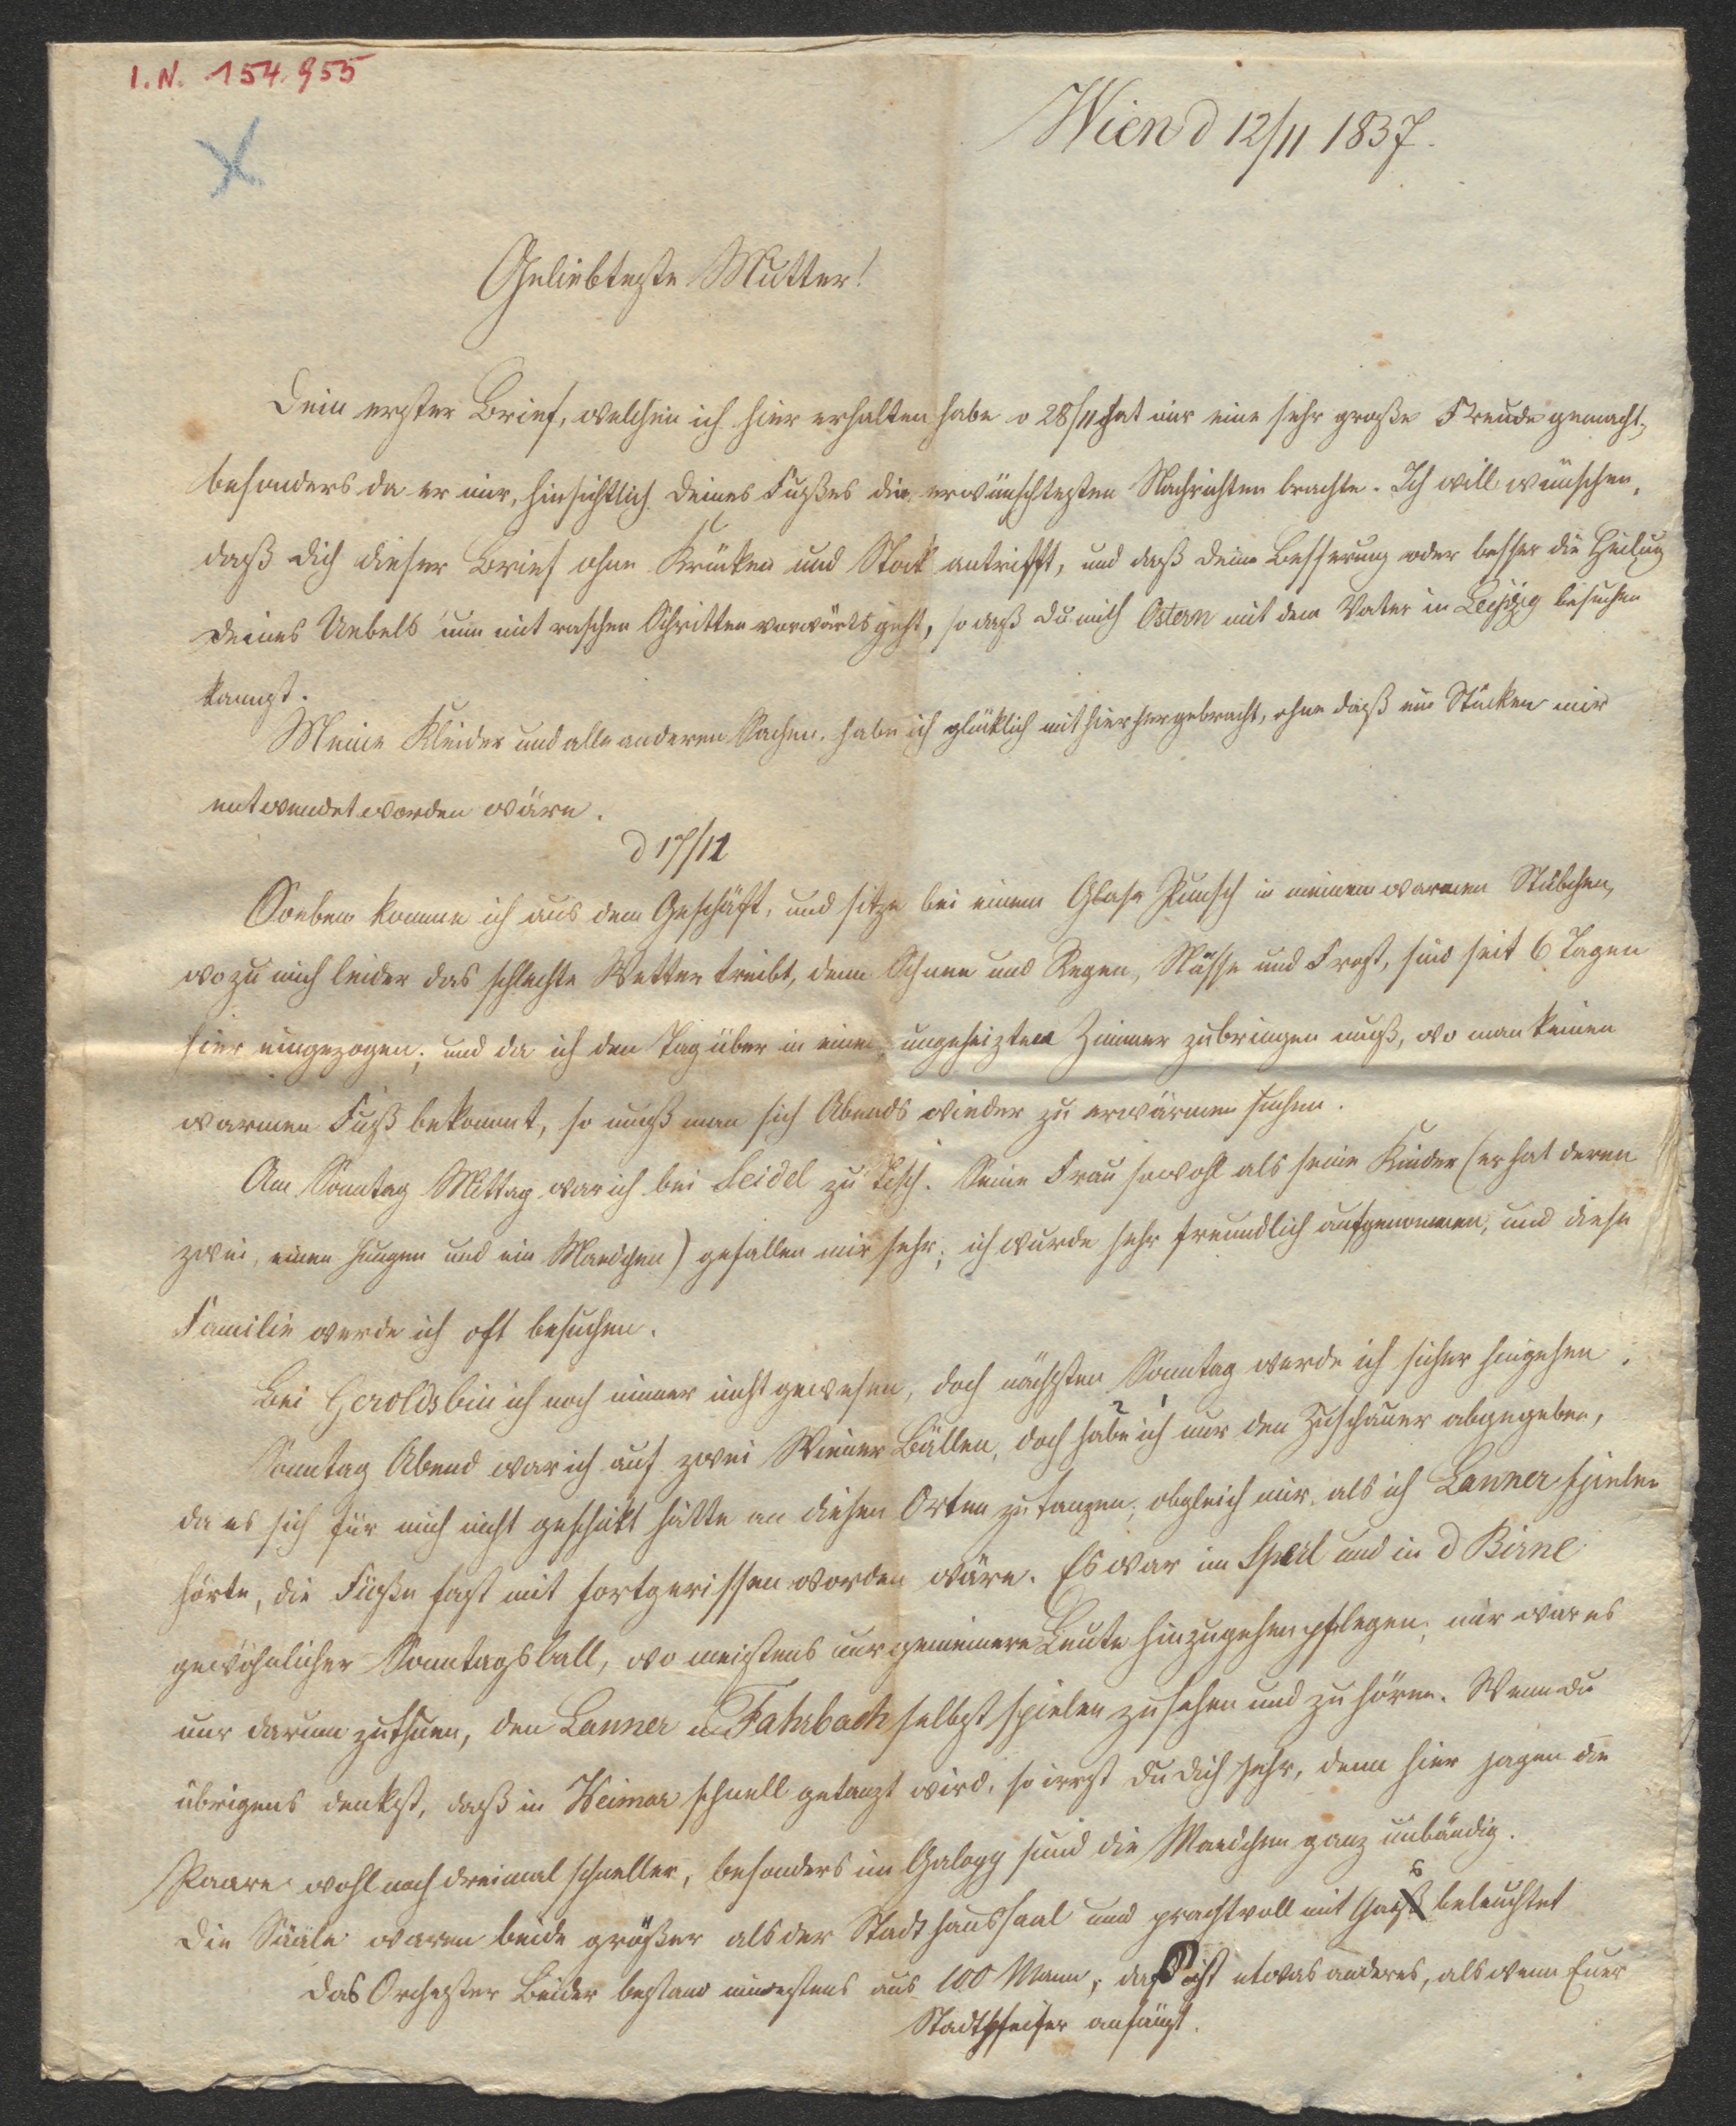 I. N. 154.955
Wien d 12/11 1837.
Geliebteste Mutter!
Dein erster Brief, welchen ich hier erhalten habe v 28/11 hat mir eine sehr große Freude gemacht,
besonders da er mir, hinsichtlich Deines Fußes die erwünschtesten Nachrichten brachte. Ich will wünschen,
daß Dich dieser Brief ohne Krücken und Stock antrifft, und daß Deine Besserung oder besser die Heilung
Deines Uebels nun mit raschen Schritten vorwärts geht, so daß Du mich Ostern mit dem Vater in Leipzig besuchen
kannst.
Meine Kleider und alle anderen Sachen, habe ich glücklich mit hierher gebracht, ohne daß ein Stücken mir
entwendet worden wäre.
d 17/12
Soeben komme ich aus dem Geschäft, und sitze bei einem Glase Punsch in meinem warmen Stübchen,
wozu mich leider das schlechte Wetter treibt, denn Schnee und Regen, Nässe und Frost, sind seit 6 Tagen
hier eingezogen; und da ich den Tag über in einem ungeheizten Zimmer zubringen muß, wo man keinen
warmen Fuß bekommt, so muß man sich Abends wieder zu erwärmen suchen.
Am Sonntag Mittag war ich bei Seidel zu Tisch. Seine Frau sowohl als seine Kinder (er hat deren
zwei, einen Jungen und ein Maedchen) gefallen mir sehr; ich wurde sehr freundlich aufgenommen, und diese
Familie werde ich oft besuchen.
Bei Gerolds bin ich noch immer nicht gewesen, doch nächsten Sonntag werde ich sicher hingehen.
Sonntag Abend war ich auf zwei Wiener Bällen, doch habe ich nur den Zuschauer abgegeben,
da es sich für mich nicht geschickt hätte an diesen Orten zu tanzen, obgleich mir, als ich Lanner spielen
hörte, die Füße fast mit fortgerissen worden wäre. Es war im Sperl und in d Birne
gewöhnlicher Sonntagsball, wo meistens nur gemeinere Leute hinzugehen pflegen; mir war es
nur darum zuthuen, den Lanner u Fahrbach selbst spielen zu sehen und zu hören. Wenn Du
übrigens denkst, daß in Weimar schnell getanzt wird, so irrst Du Dich sehr, denn hier jagen die
Paare wohl noch dreimal schneller, besonders im Galopp sind die Maedchen ganz unbändig.
Die Sääle waren beide größer als der Stadthaussaal und prachtvoll mit Gas beleuchtet
Das Orchester Beider bestand mindestens aus 100 Mann; das ist etwas anderes, als wenn Euer
Stadtpfeifer anfängt.